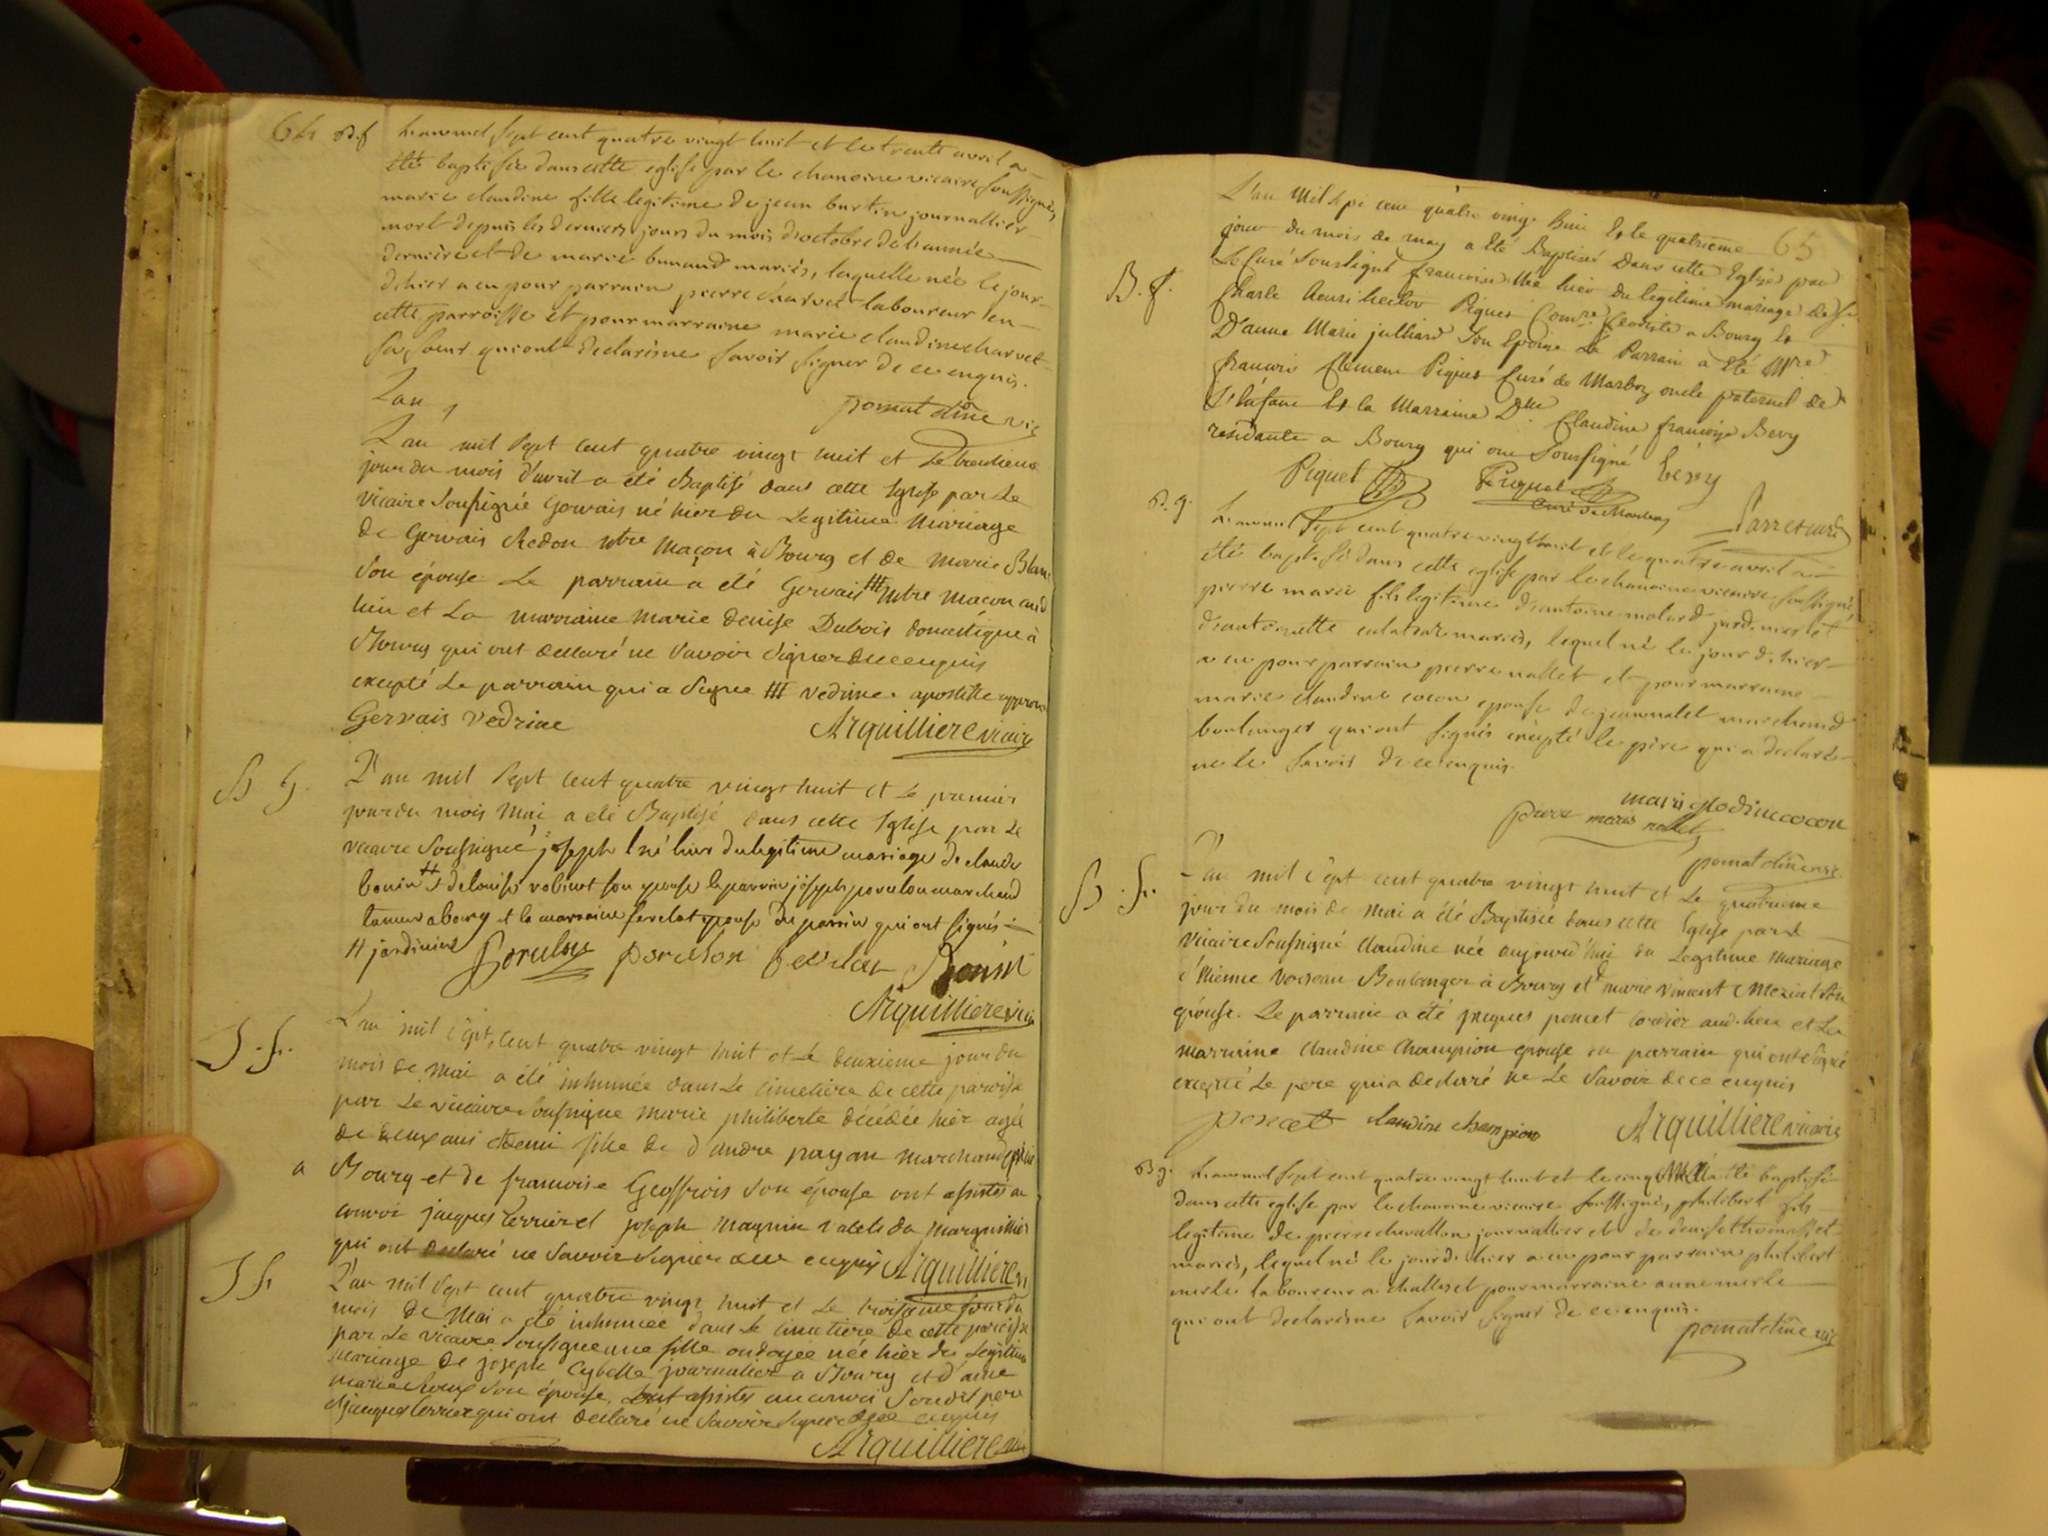 64
B.f
L'an mil sept cent quatre vingt huit et le trente avril a
été baptisée dans cette eglise par le chanoine vicaire soussigné,
marie claudine fille legitime de jean burtin journallier
mort depuis les derniers jours du mois d'octobre de l'année
derniere et de marie bunand mariés, laquelle née le jour
d'hier a eu pour parrain pierre charvet laboureur en
cette parroisse et pour marraine marie claudine charvet
sa soeur qui ont declaré ne savoir signer de ce enquis.
pomat chne vic
L'an
L'an mil sept cent quatre vingt huit et le trentieme
jour du mois d'avril a été Baptisé dans cette Eglise par le
vicaire soussigné Gervais né hier du legitime mariage
de Gervais Redon ntre maçon à Bourg et de marie Blanc
son épouse. Le parrain a été Gervais ### ntre maçon aud
lieu et La marraine marie denise Dubois domestique à
Bourg qui ont declaré ne savoir signer de ce enquis
excepté Le parrain qui a signé ### vedrine. apostille approuv
Gervais vedrine
Arquilliere vicaire
B g.
L'an mil sept cent quatre vingt huit et le premier
jour du mois Mai a été Baptisé dans cette Eglise par Le
vicaire soussigné joseph né hier du legitime mariage de claude
bonin # & de louise robinet son epouse le parrain joseph porulon marchand
taneur a bourg et la marraine fevelat epouse du parrain qui ont signés
# jardinier
Porulon porulon fevelat Bonin
Arquilliere vicai
S.f.
L'an mil sept cent quatre vingt huit et Le deuxieme jour du
mois de Mai a été inhumée dans Le cimetiere de cette paroisse
par Le vicaire soussigné marie philiberte décédée hier agée
de deux ans et demi fille de d'andré payan marchand epicier
a Bourg et de francoise Geoffrois son épouse ont assistés au
convoi jacques terrier et joseph magnin valets du marguillier
qui ont declaré ne savoir signer de ce enquis Arquilliere v
S f.
L'an mil sept cent quatre vingt huit et Le troisieme jour du
mois de Mai a été inhumée dans Le cimetiere de cette paroisse
par Le vicaire soussigné une fille ondoyée née hier du Legitime
mariage de joseph Cybelle journalier a Bourg et d'anne
marie Roux son épouse. Ont assistés au convoi Son dit pere
et jacques terrier qui ont declaré ne savoir signer de ce enquis
Arquilliere vic
65
B.f.
L'an Mil Sept cent quatre vingt huit & le quatrieme
jour du mois de may a Eté Baptisée Dans cette Eglise par
Le Curé Soussigné francoise née hier du legitime mariage de Sr
Charle henri hector Piquet Comre feodiste a Bourg &
D'anne Marie julliard Son Epouse Le Parrain a Eté Mre
francois Clement Piquet Curé de Marboz oncle paternel de
l'Enfant & la Marraine Dlle Claudine françoise Bevy
residante a Bourg qui ont Soussigné
Piquet Piquet bévy
curé de Marboz
B.g.
L'an mil sept cent quatre vingt huit et le quatre avril a
été baptisé dans cette eglise par le chanoine vicaire soussigné
pierre marie fils legitime d'antoine molard jard. mar et
d'antoinette mariés, lequel né le jour d'hier
a eu pour parrain pierre nallet et pour marraine
marie claudine cocon epouse de jean nallet marchand
boulanger qui ont signés excepté le père qui a declaré
ne le savoir de ce enquis.
marie clodine cocon
pierre marie nallet
pomat chne vic
B.f.
L'an mil sept cent quatre vingt huit et Le quatrieme
jour du mois de Mai a été Baptisée dans cette Eglise par Le
vicaire soussigné claudine née aujourd'hui du Legitime mariage
d'étienne voiseau Boulanger à Bourg et marie vincent Meziat son
épouse. Le parrain a été jacques poncet cordier aud. lieu et La
marraine claudine Champion epouse du parrain qui ont signé
excepté Le pere qui a declaré ne Le savoir de ce enquis
poncet claudine champion Arquilliere vicaire
B g.
L'an mil sept cent quatre vingt huit et le cinq Mai a été baptisé
dans cette eglise par le chanoine vicaire soussigné, philibert fils
legitime de pierre chevallon journallier et de denise thomasset
mariés, lequel né le jour d'hier a eu pour parrain philibert
merle laboureur a challes et pour marraine anne merle
qui ont declaré ne savoir signer de ce enquis.
pomat chne vic